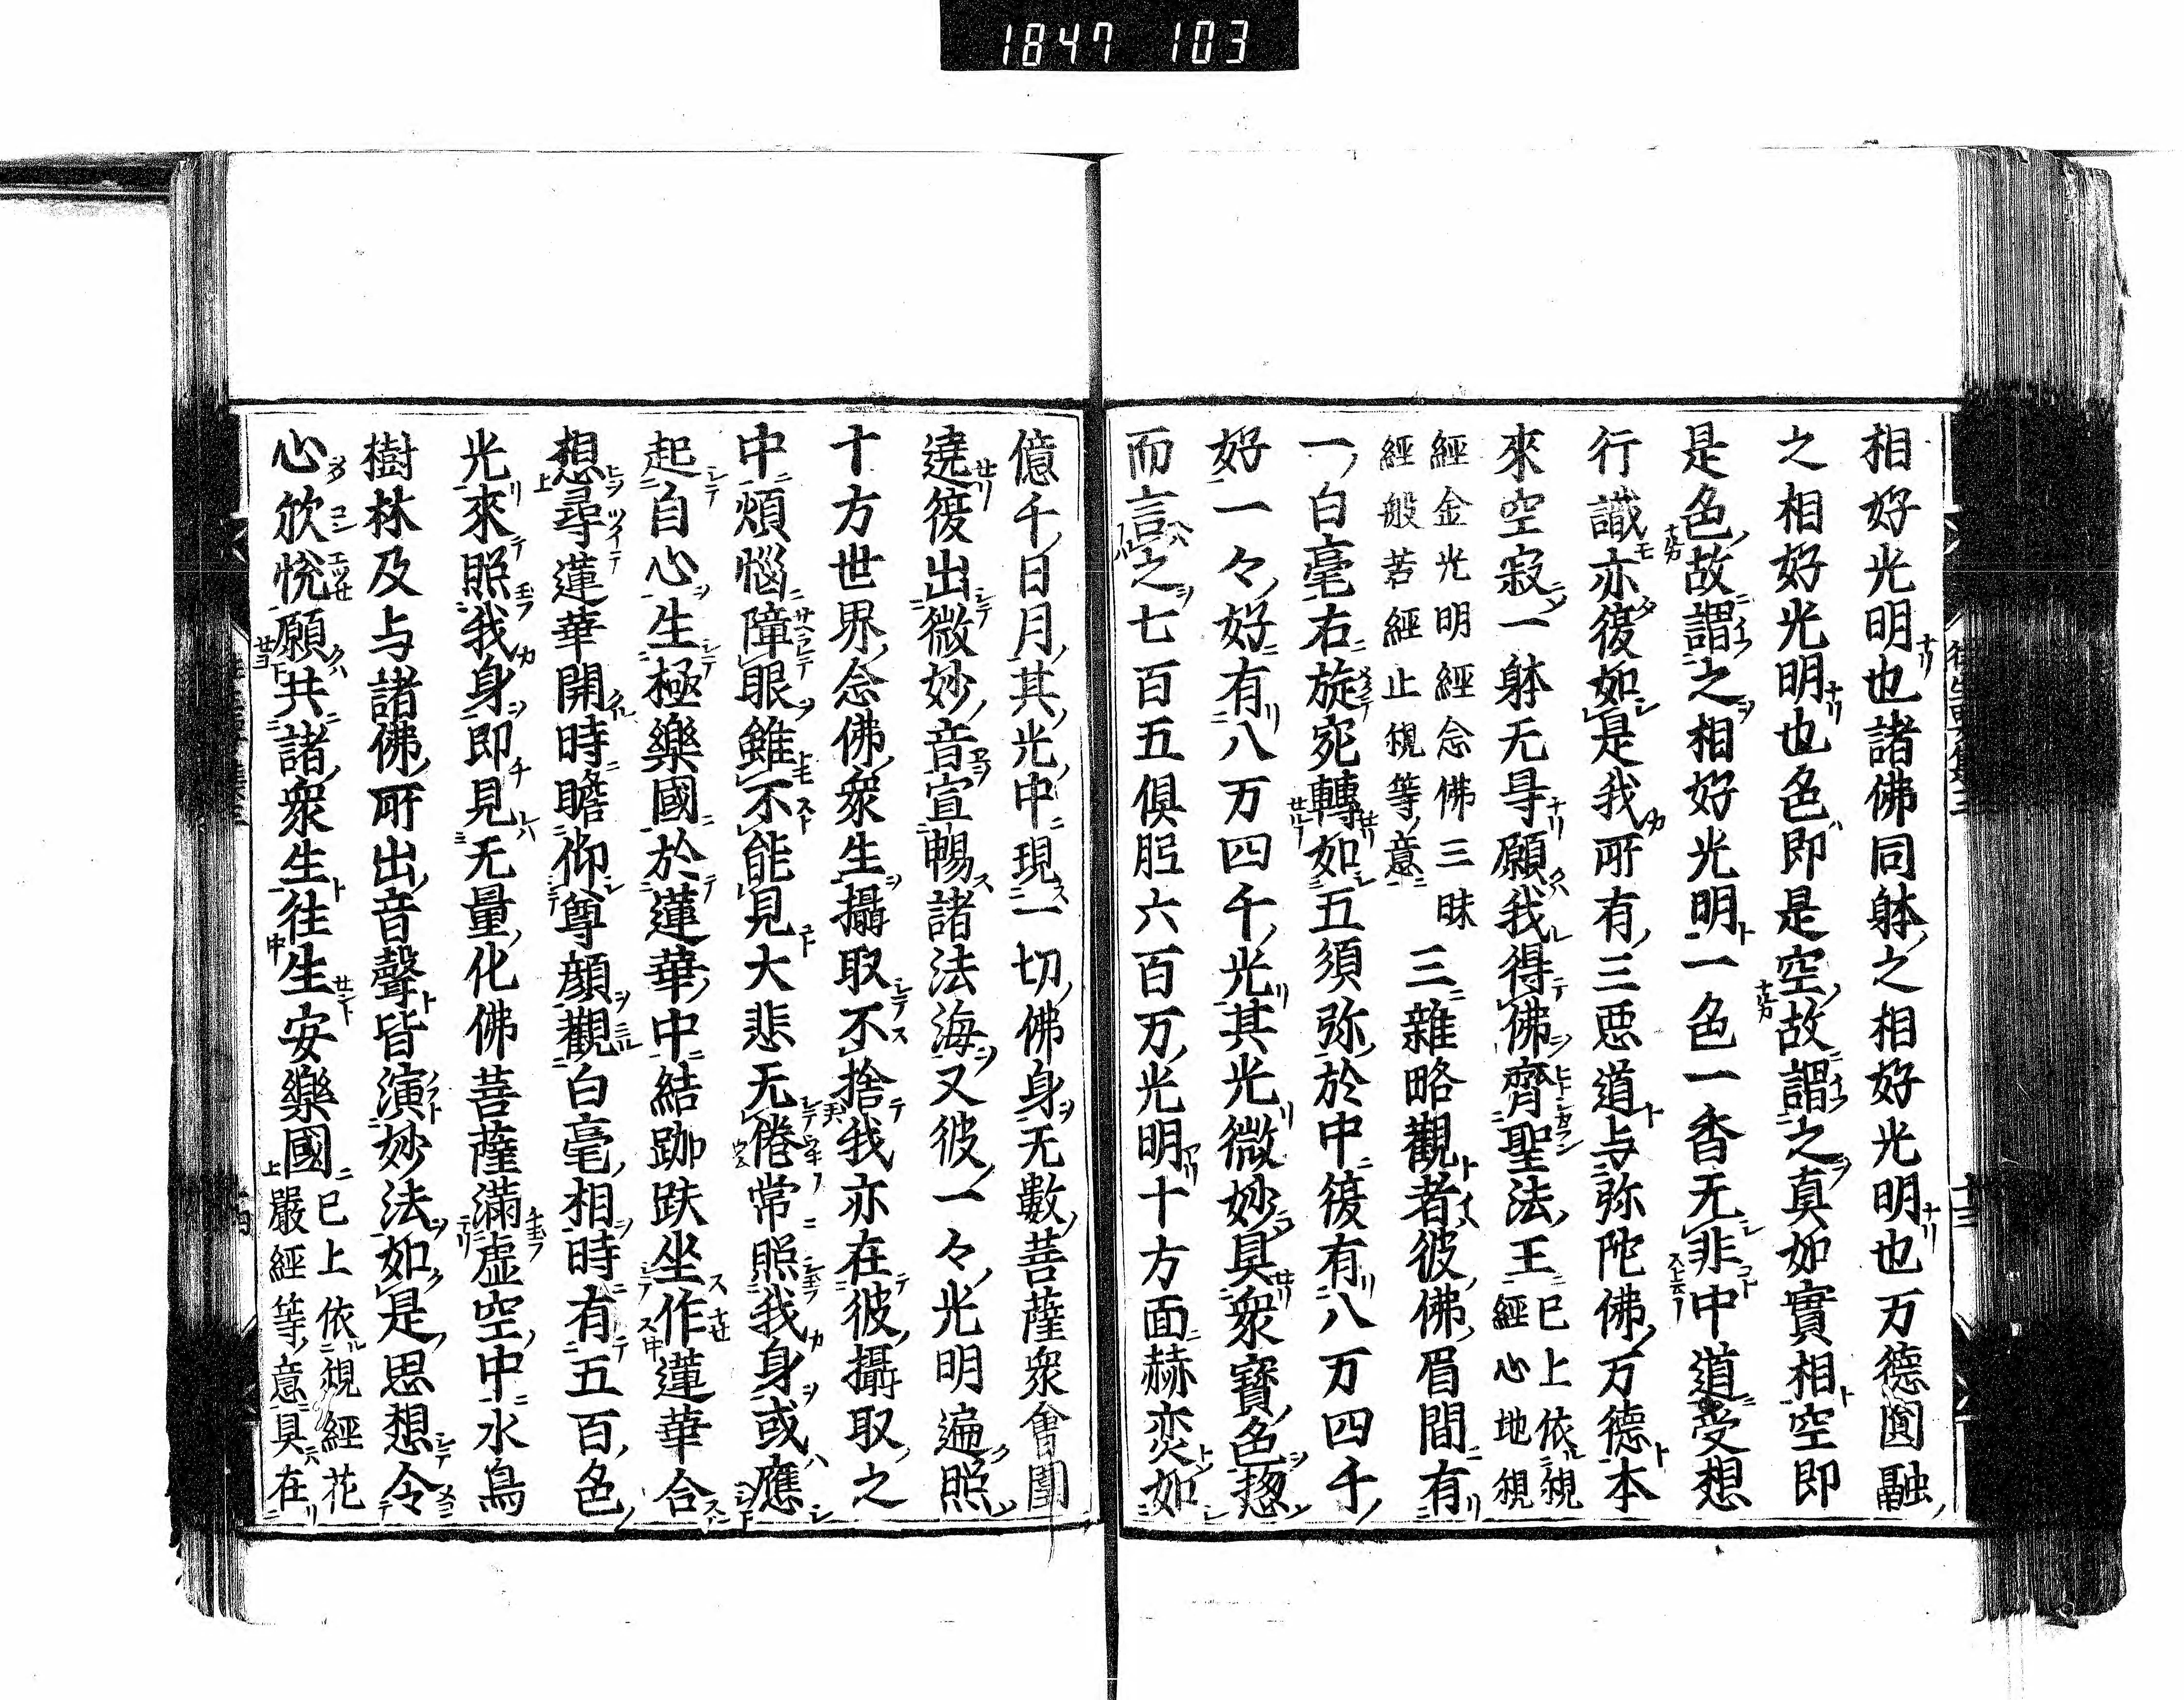 1847 103
相好光明也諸佛同躰之相好光明也万德圓融
之相好光明也色即是空故謂之真如實相空即
是色故謂之相好光明一色一香无非中道受想
行識亦復如是我所有三悪道与弥陀佛万德本
來空寂一躰无㝵願我得佛齊聖法王已上依觀經心地觀
經金光明經念佛三昧
經般若經止觀等意 三雜略觀者彼佛眉間有
一白毫右旋宛轉如五須弥於中復有八万四千
好一々好有八万四千光其光微妙具衆寳色惣
而言之七百五俱胝六百万光明十方面赫奕如
億千日月其光中現一切佛身无數菩薩衆會圍
遶復出微妙音宣暢諸法海又彼一々光明遍照
十方世界念佛衆生攝取不捨我亦在彼攝取之
中煩惱障眼雖不能見大悲无倦常照我身或應
起自心生極樂國於蓮華中結跏趺坐作蓮華合
想尋蓮華開時瞻仰尊顔觀白毫相時有五百色
光來照我身即見无量化佛菩薩滿虛空中水鳥
樹林及与諸佛所出音聲皆演妙法如是思想令
心欣悅願共諸衆生往生安樂國已上依觀經花
嚴經等意具在